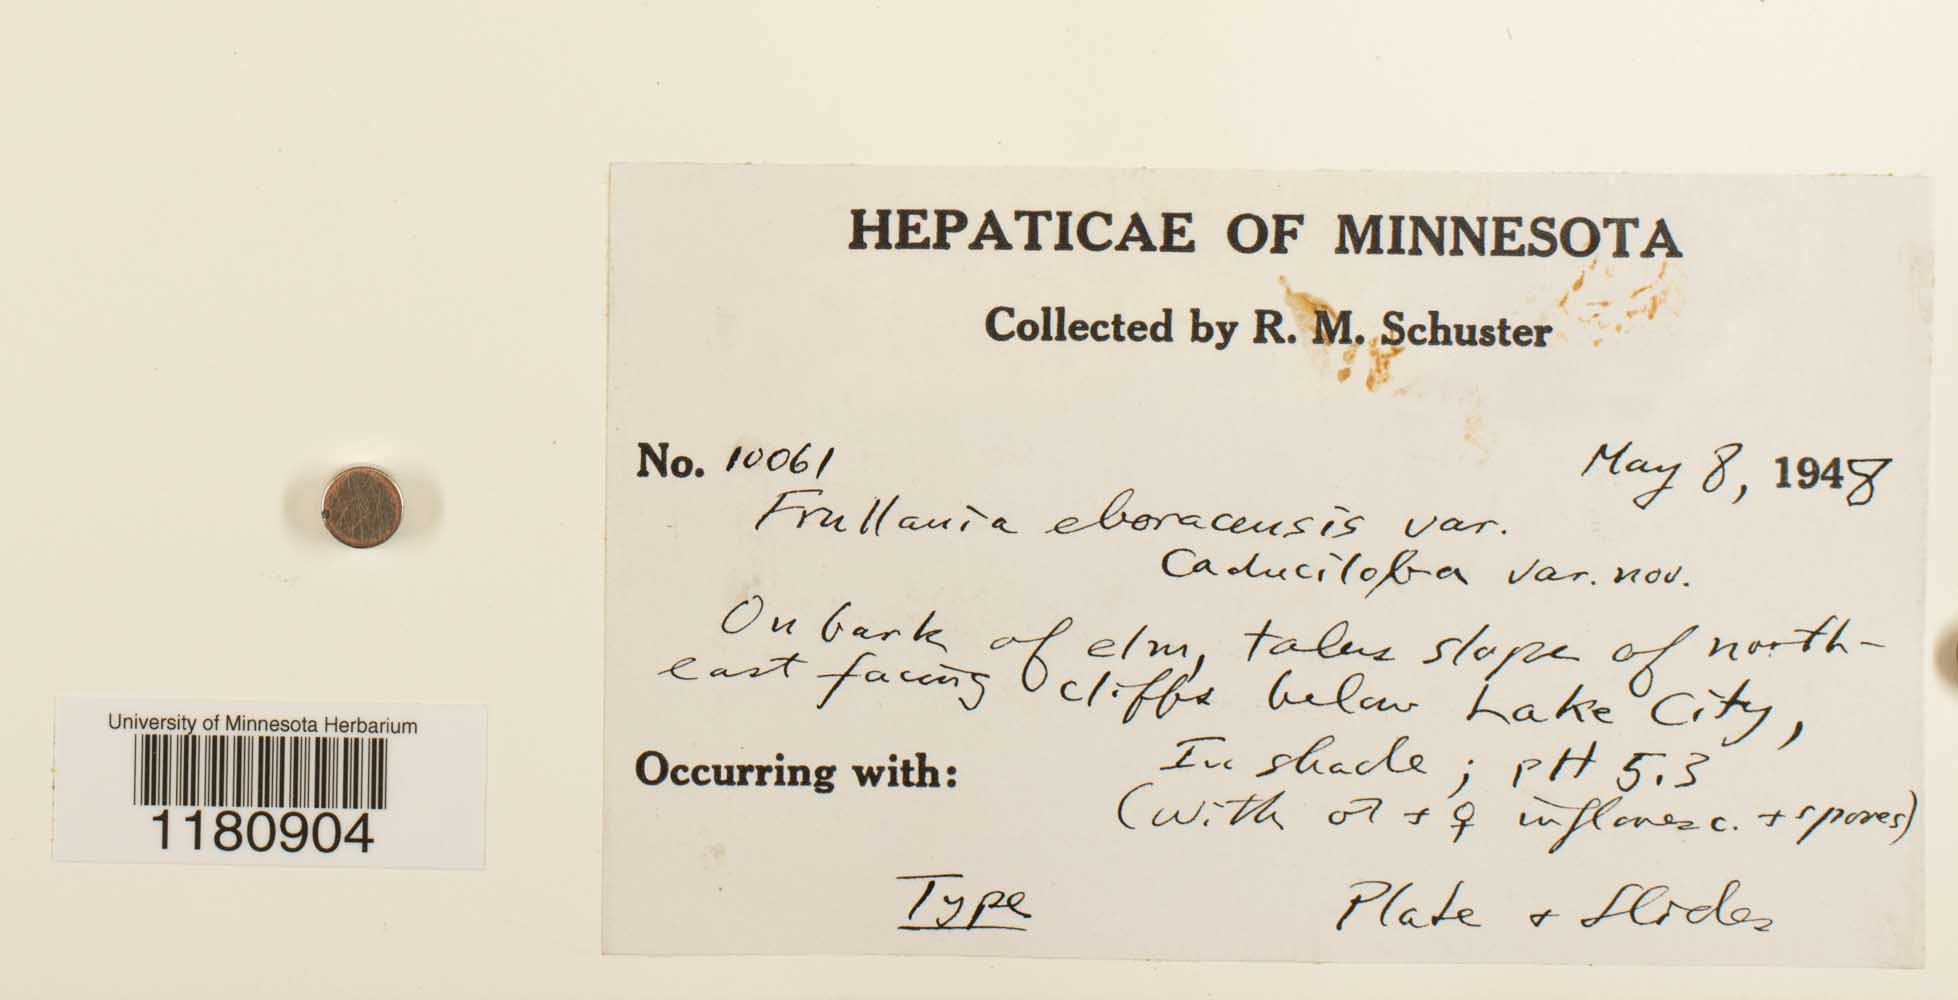 HEPATICAE OF MINNESOTA
Collected by R. M. Schuster
No. 10061 May 8, 1948
Frullania eboracensis var.
caduciloba var. nov.
On bark of elm, talus slope of north-
east facing cliffs below Lake City,
In shade; pH 5.3
Occurring with:
(with ♂ + ♀ infloresc. + spores)
Type Plate + Slides
University of Minnesota Herbarium
1180904